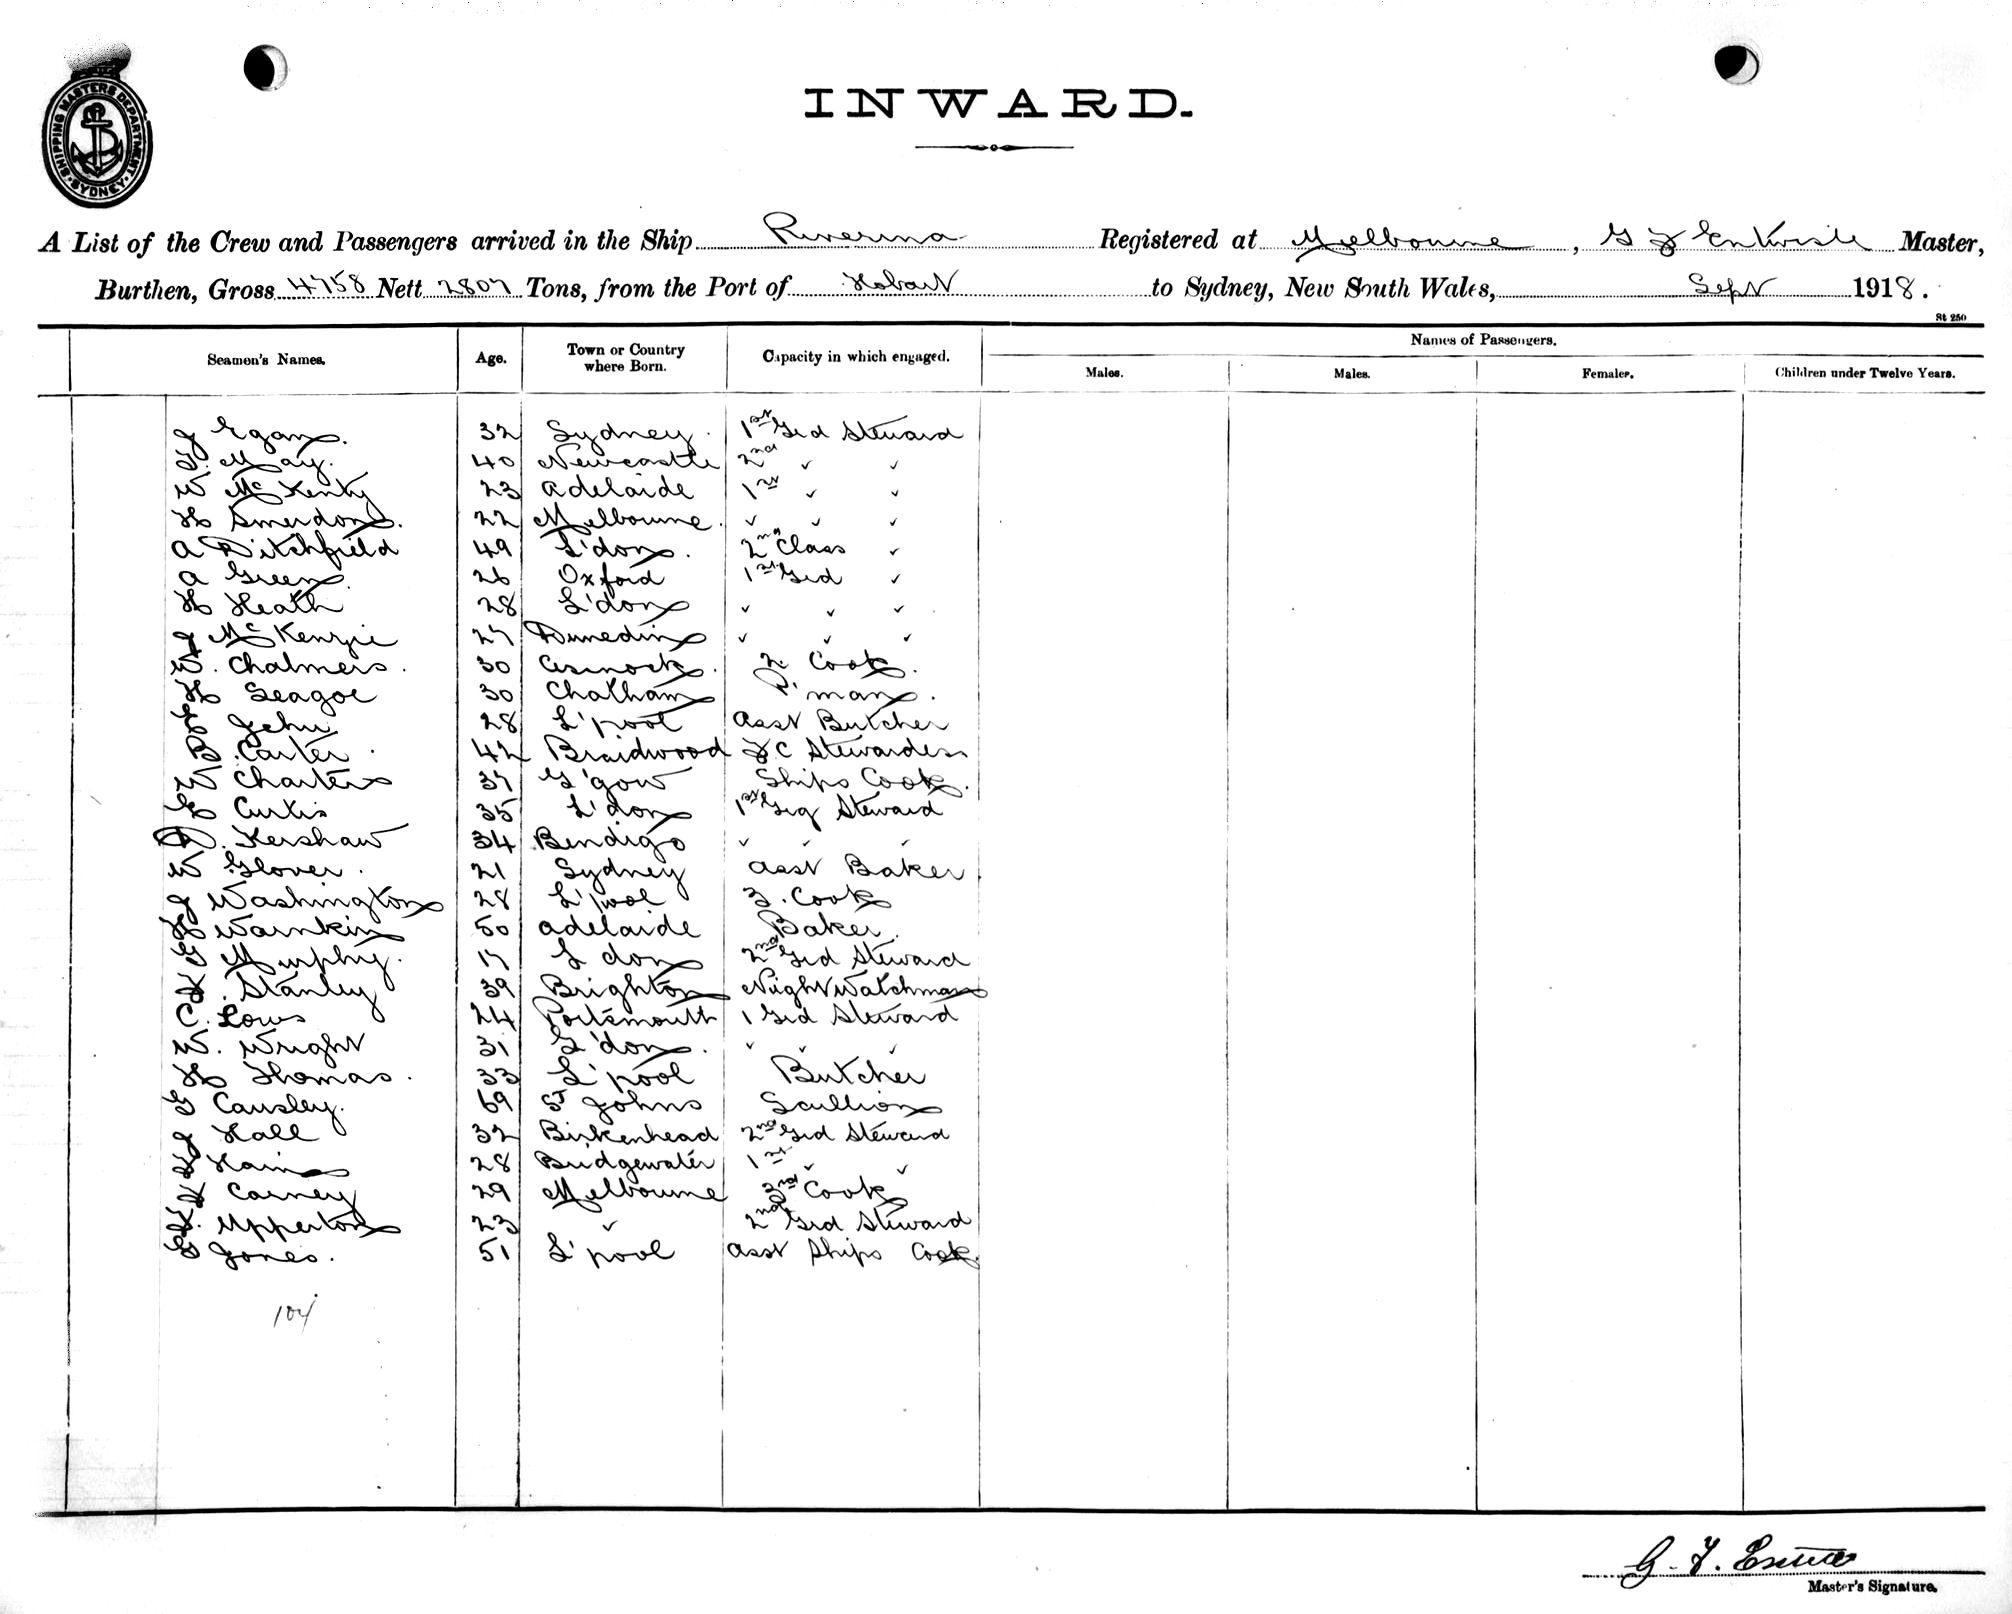 SHIPPING MASTERS DEPARTMENT SYDNEY
INWARD.
A List of the Crew and Passengers arrived in the Ship Riverina Registered at Melbourne, G F Entwistle Master,
Burthen, Gross 4758 Nett 2807 Tons, from the Port of Hobart to Sydney, New South Wales, Sept 1918.
St 250
Seamen's Names. Age. Town or Country where Born. Capacity in which engaged. Names of Passengers.
Males. Males. Females. Children under Twelve Years.
J Egan. 32 Sydney. 1st Grd Steward
T. May. 40 Newcastle 2nd " "
W McKenty 23 Adelaide 1st " "
H Smerdon. 22 Melbourne. " " "
A Ditchfield 49 L'don. 2nd Class "
A Green. 26 Oxford 1st Grd "
H Heath 28 L'don " " "
J McKenzie 27 Dunedin " " "
W. Chalmers. 30 2 Cook.
H Seagoe 30 Chatham P'man.
Jehu 28 L'pool Asst Butcher
B. Carter. 42 Braidwood F C Stewardess
W Charters 37 G'gow Ships Cook.
Curtis 35 L'don 1st Grd Steward
D. Kershaw 34 Bendigo " " "
W Glover. 21 Sydney Asst Baker.
J Washington 28 L'pool 3. Cook
H Warnkin 50 Adelaide Baker.
G Murphy. 17 L'don 2nd Grd Steward
Stanley 39 Brighton Night Watchman
C. Lows 24 Portsmouth 1 Grd Steward
W. Wright 31 L'don. " " "
H Thomas. 33 L'pool Butcher
G Causley. 69 St Johns Scullion
J Hall 32 Birkenhead 2nd Grd Steward
Hain 28 Bridgewater 1st " "
Carney 29 Melbourne 3rd Cook
Upperton 23 " 2nd Grd Steward
G Jones. 51 L'pool Asst Ships Cook.
104
G. F. Entwistle
Master's Signature.